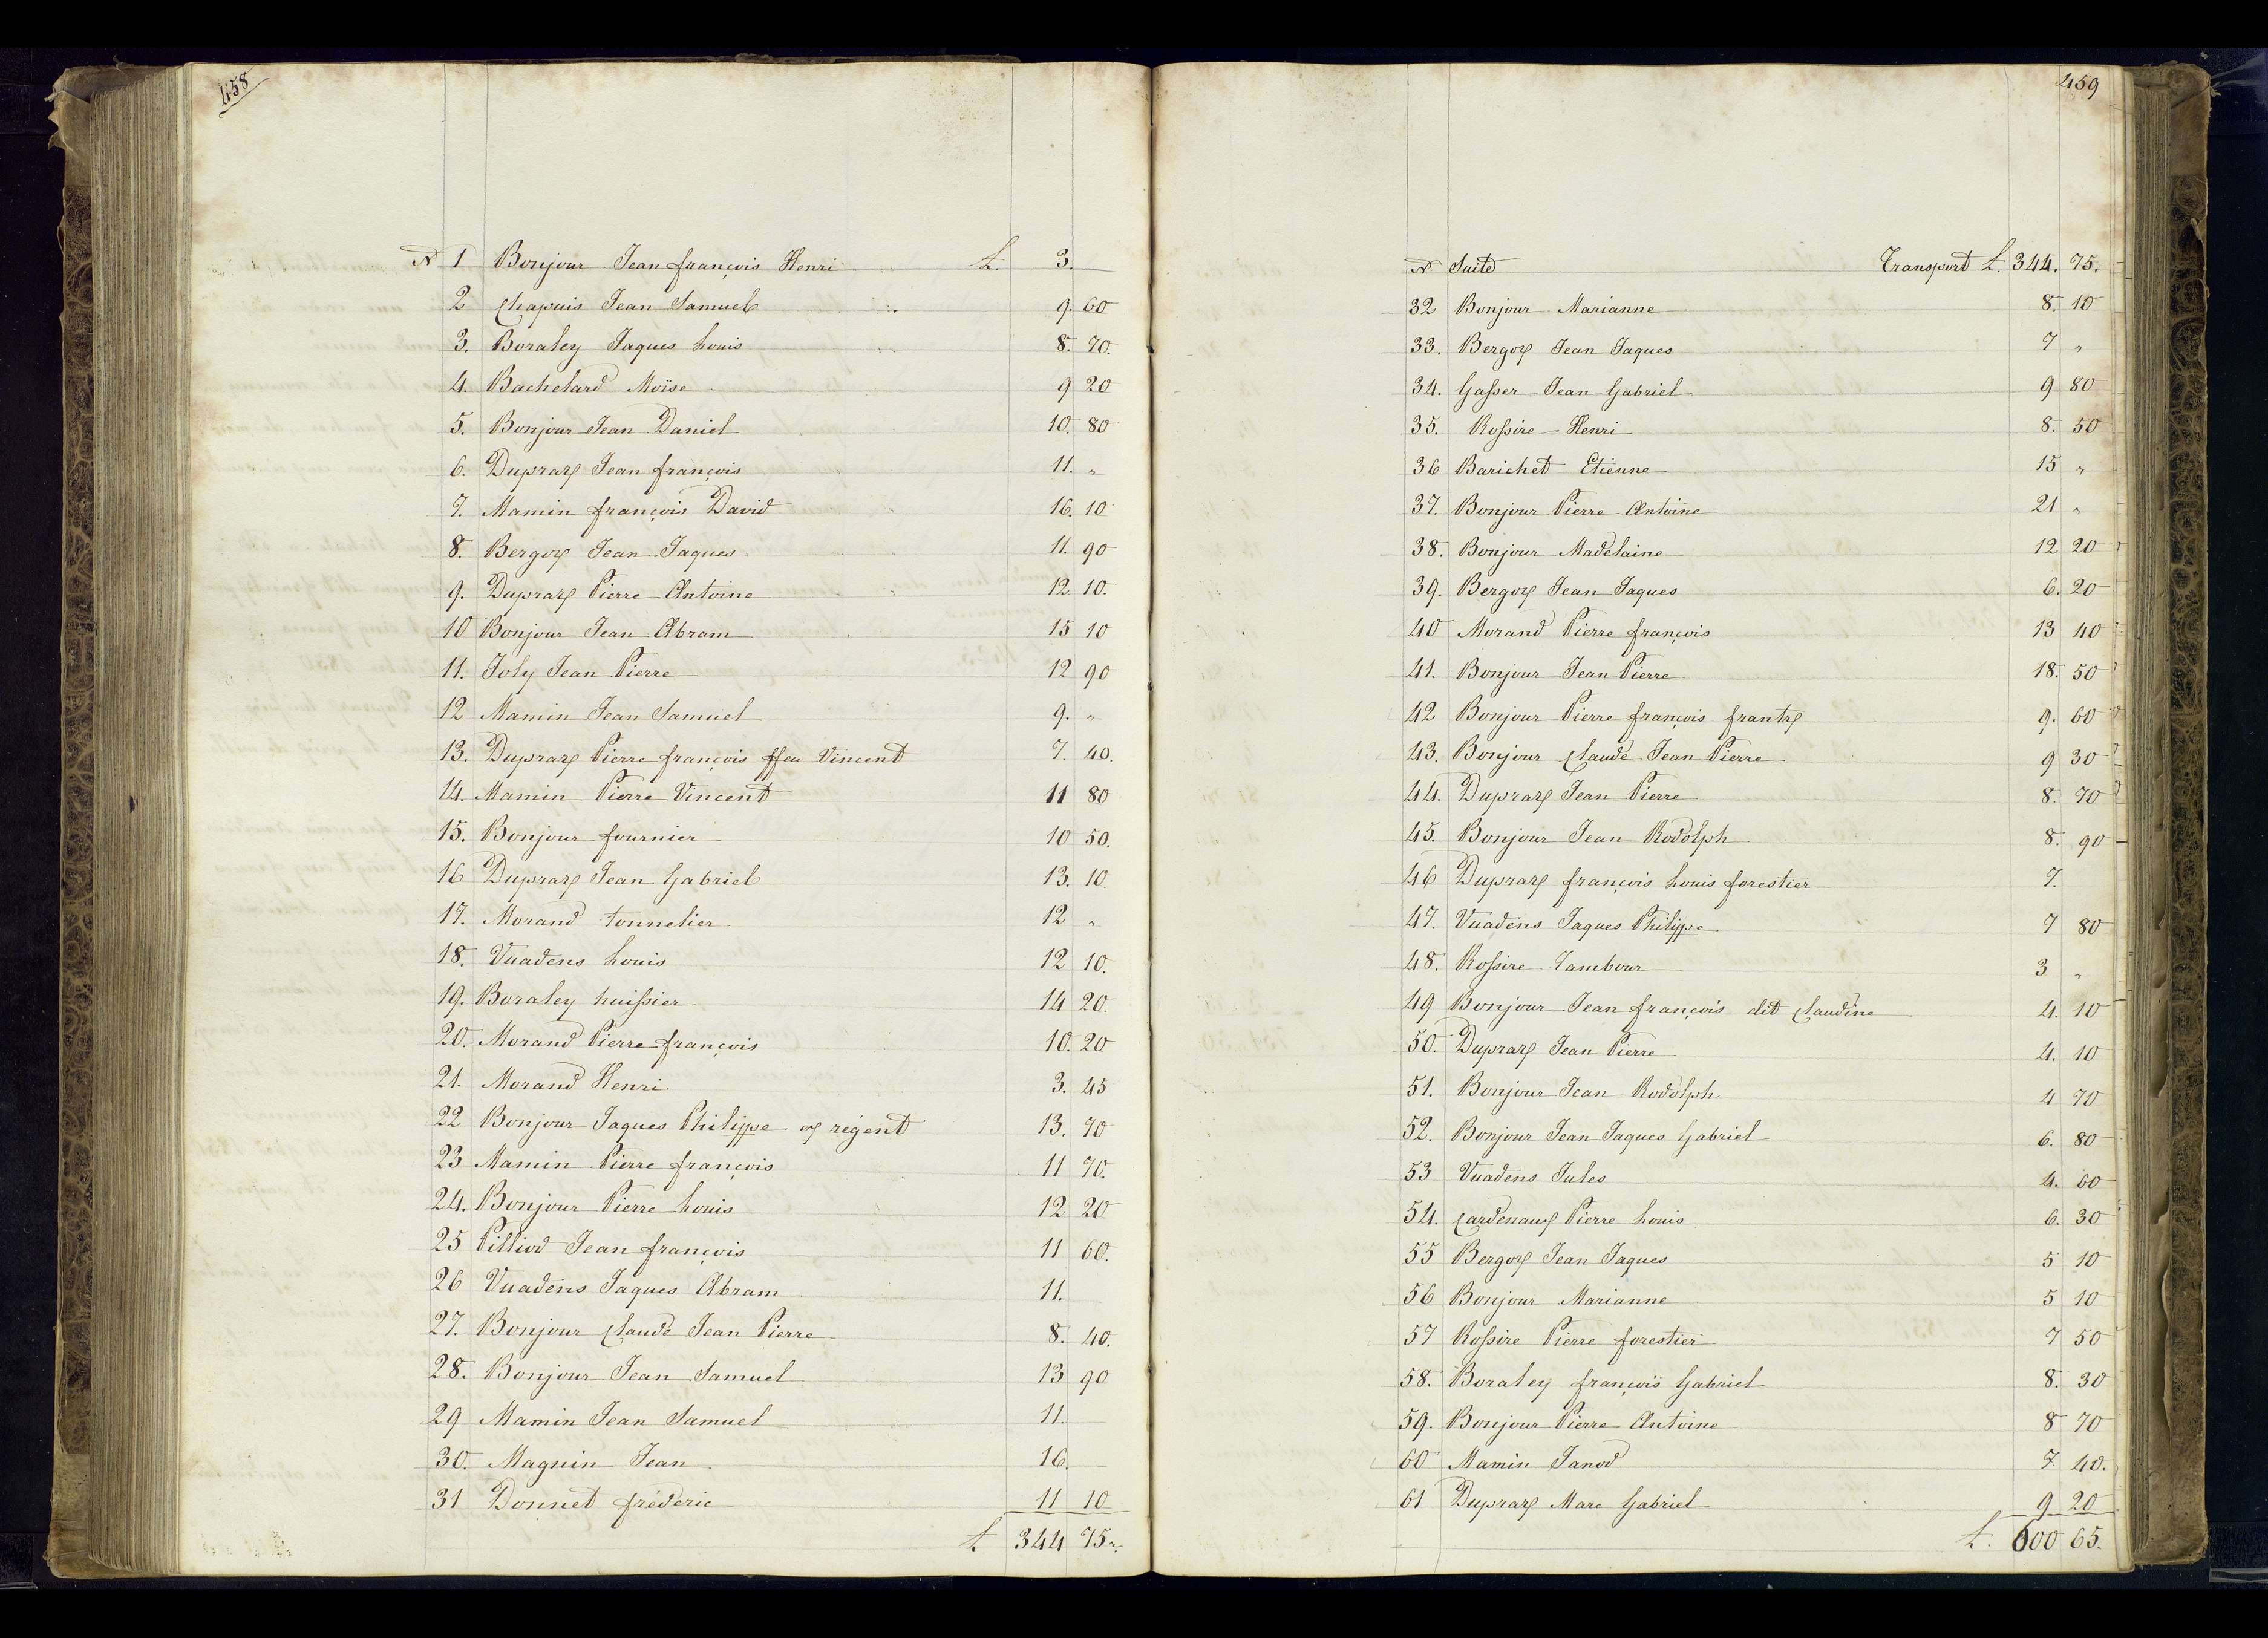 458
N 1 Bonjour Jean françois Henri L. 3.
2 Chapuis Jean Samuel 9. 60
3. Boraley Jaques Louis 8. 70.
4. Bachelard Moïse 9 20
5. Bonjour Jean Daniel 10. 80
6. Duprax Jean françois 11. "
7. Mamin françois David 16. 10
8. Bergox Jean Jaques 11. 90
9. Duprax Pierre Antoine 12. 10.
10 Bonjour Jean Abram 15 10
11. Joly Jean Pierre 12 90
12 Mamin Jean Samuel 9. "
13. Duprax Pierre françois ffeu Vincent 7. 40.
14. Mamin Pierre Vincent 11 80
15. Bonjour fournier 10 50.
16 Duprax Jean Gabriel 13. 10.
17. Morand tonnelier 12 "
18. Vuadens Louis 12 10.
19. Boraley huissier 14 20.
20. Morand Pierre françois 10. 20
21. Morand Henri 3. 45
22 Bonjour Jaques Philippe ex régent 13. 70
23 Mamin Pierre françois 11 70.
24. Bonjour Pierre Louis 12 20
25 Pilliod Jean françois 11 60.
26 Vuadens Jaques Abram 11.
27. Bonjour Claude Jean Pierre 8. 40.
28. Bonjour Jean Samuel 13 90
29 Mamin Jean Samuel 11.
30. Magnin Jean 16.
31 Donnet fréderic 11 10
L. 344 75 "
459
N Suite Transport L. 344. 75.
32 Bonjour Marianne 8. 10
33. Bergox Jean Jaques 7 "
34. Gasser Jean Gabriel 9 80
35. Rossire Henri 8. 50
36 Barichet Etienne 15 "
37. Bonjour Pierre Antoine 21 "
38. Bonjour Madelaine 12 20
39. Bergox Jean Jaques 6. 20
40 Morand Pierre françois 13 40
41. Bonjour Jean Pierre 18. 50
42 Bonjour Pierre françois frantx 9. 60
43. Bonjour Claude Jean Pierre 9 30
44. Duprax Jean Pierre 8. 70
45. Bonjour Jean Rodolph 8. 90
46 Duprax françois Louis forestier 7.
47. Vuadens Jaques Philippe 7 80
48. Rossire Tambour 3 "
49 Bonjour Jean françois dit Claudine 4. 10
50. Duprax Jean Pierre 4. 10
51. Bonjour Jean Rodolph 4 70
52. Bonjour Jean Jaques Gabriel 6. 80
53 Vuadens Jules 4. 60
54. Cardenaux Pierre Louis 6. 30
55 Bergox Jean Jaques 5 10
56 Bonjour Marianne 5 10
57 Rossire Pierre forestier 7 50
58. Boraley françois Gabriel 8. 30
59. Bonjour Pierre Antoine 8 70
60 Mamin Janod 7 40.
61 Duprax Marc Gabriel 9 20
L. 600 65.